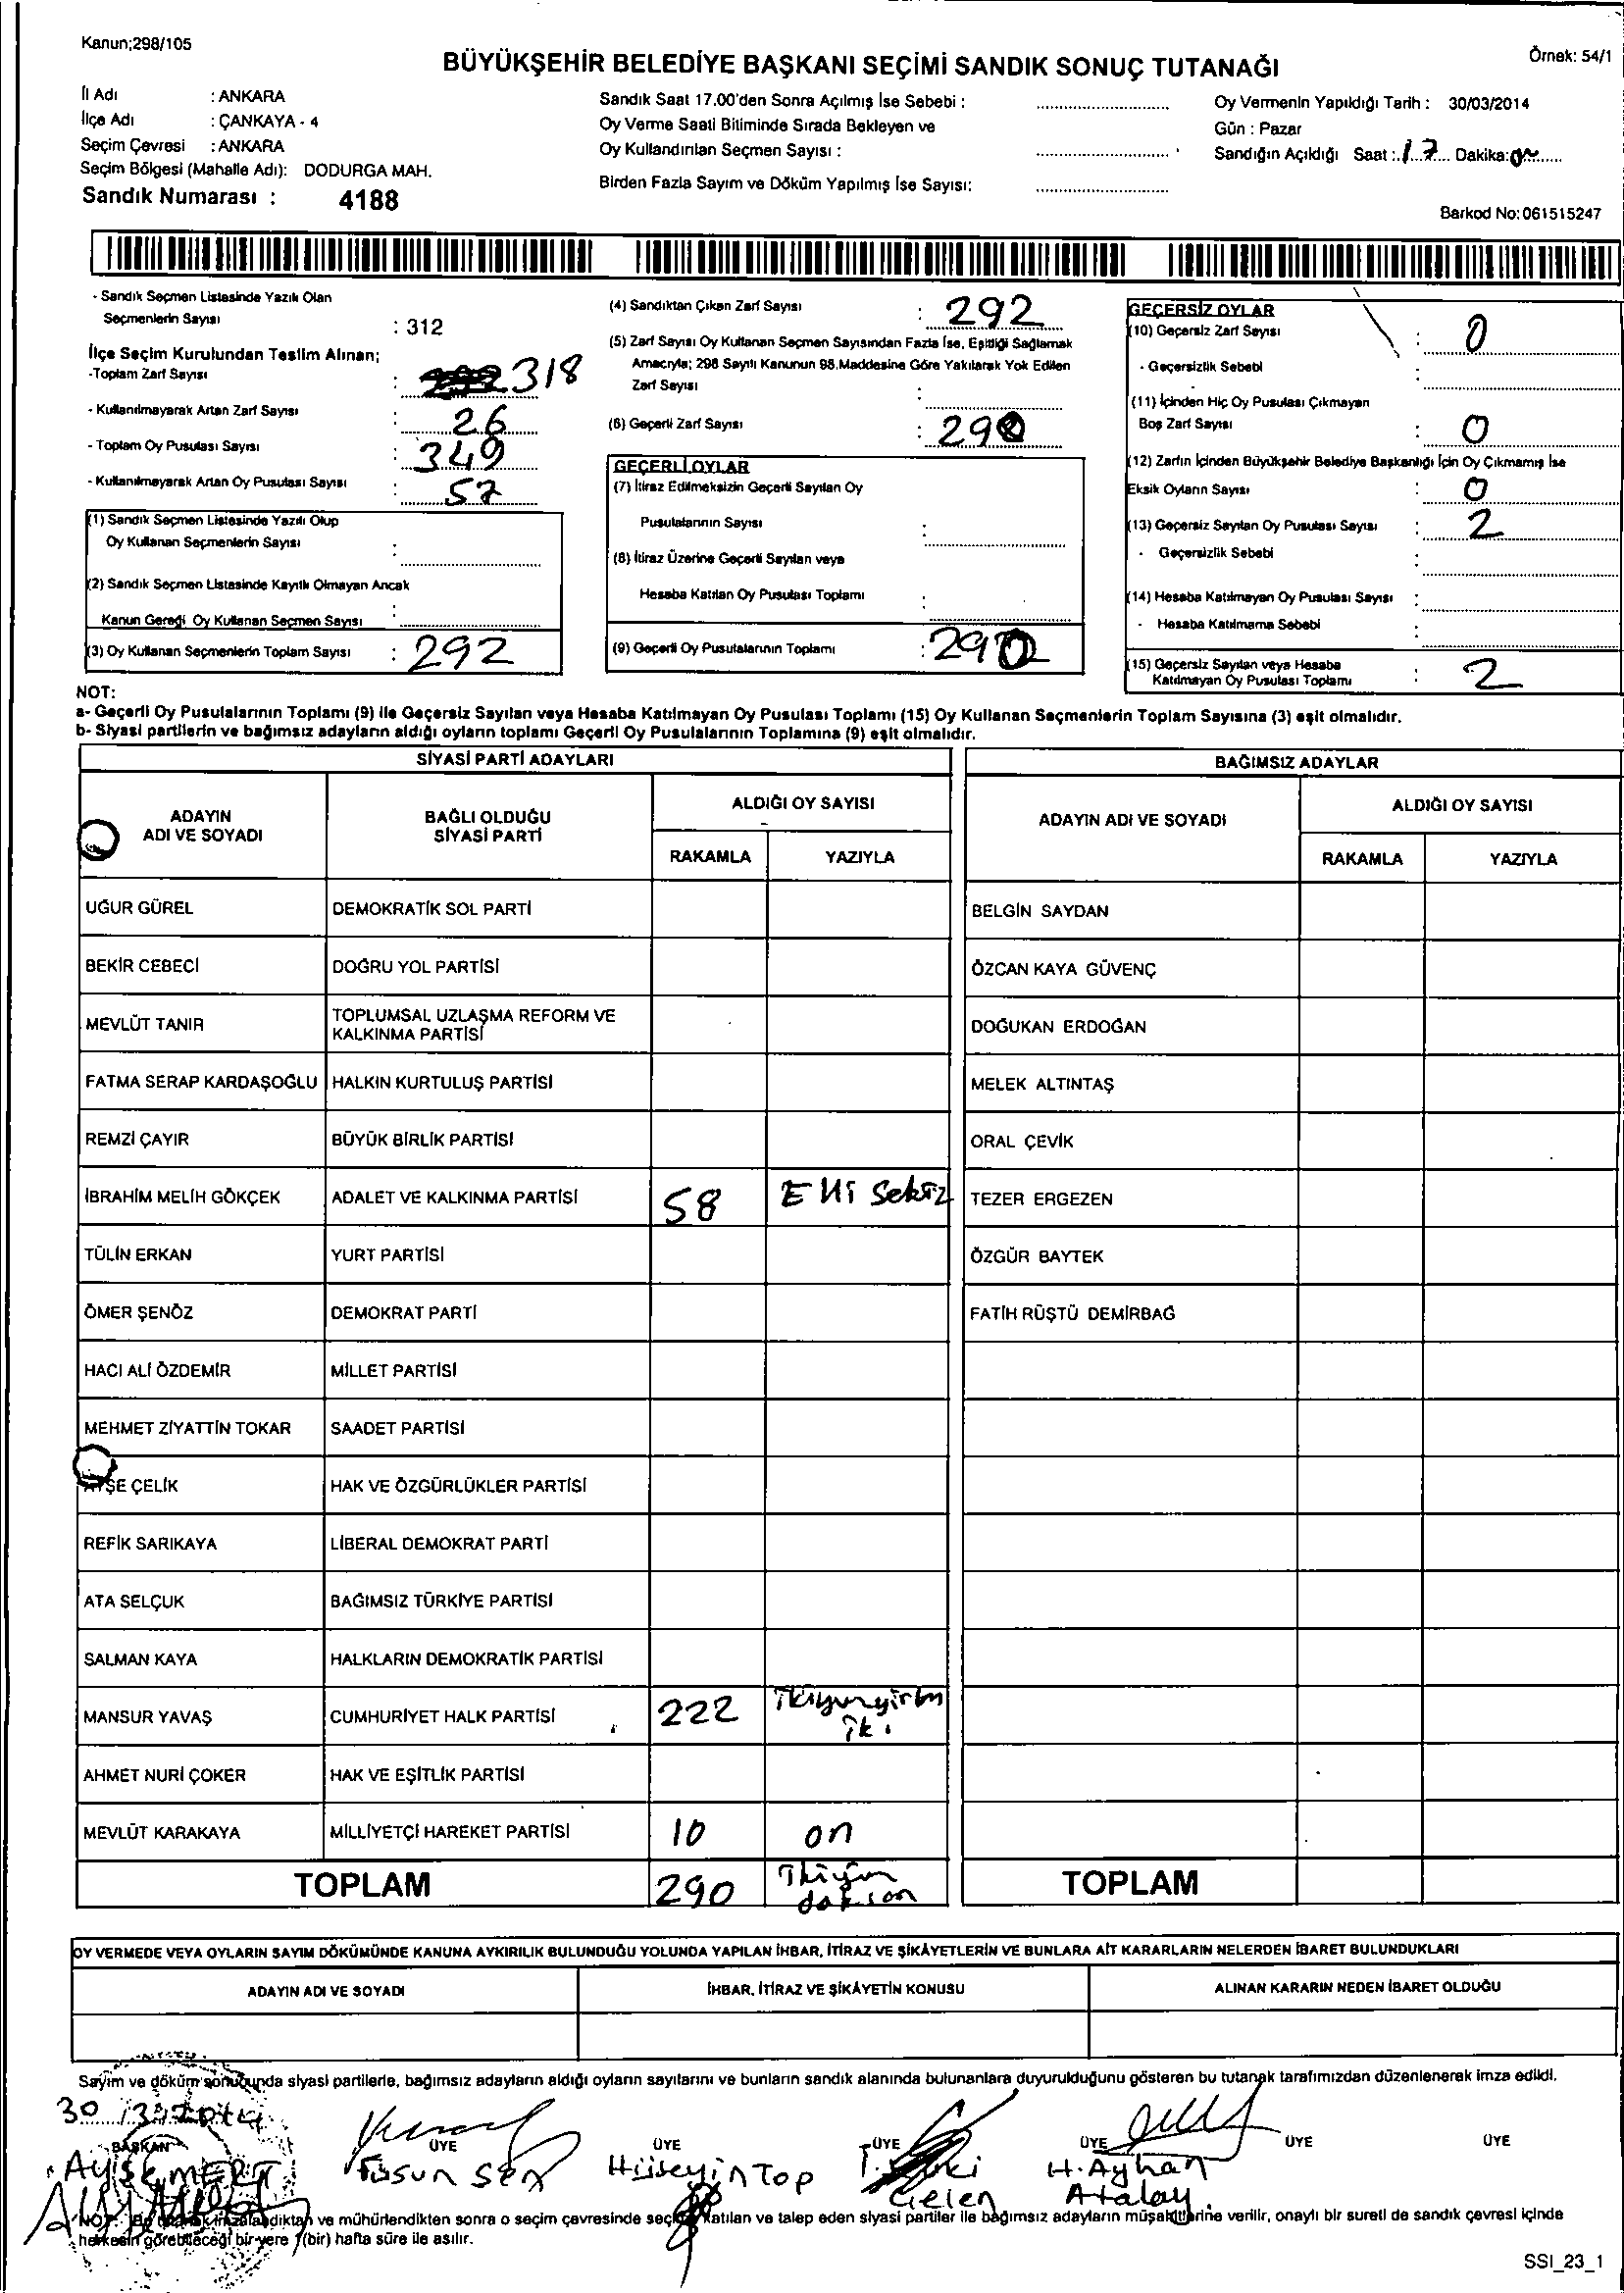 Kanun;298/105
Örnek: 54/1
BÜYÜKŞEHİR BELEDİYE BAŞKANI SEÇİMİ SANDIK SONUÇ TUTANAĞI
İl Adı : ANKARA
İlçe Adı : ÇANKAYA - 4
Seçim Çevresi : ANKARA
Seçim Bölgesi (Mahalle Adı): DODURGA MAH.
Sandık Numarası : 4188
Sandık Saat 17.00'den Sonra Açılmış İse Sebebi :
Oy Verme Saati Bitiminde Sırada Bekleyen ve
Oy Kullandırılan Seçmen Sayısı :
Birden Fazla Sayım ve Döküm Yapılmış İse Sayısı:
Oy Vermenin Yapıldığı Tarih : 30/03/2014
Gün : Pazar
Sandığın Açıldığı Saat : 17 Dakika:
Barkod No: 061515247
- Sandık Seçmen Listesinde Yazılı Olan
Seçmenlerin Sayısı : 312
İlçe Seçim Kurulundan Teslim Alınan;
-Toplam Zarf Sayısı : 318
- Kullanılmayarak Artan Zarf Sayısı : 26
- Toplam Oy Pusulası Sayısı : 349
- Kullanılmayarak Artan Oy Pusulası Sayısı : 57
(1) Sandık Seçmen Listesinde Yazılı Olup
Oy Kullanan Seçmenlerin Sayısı :
(2) Sandık Seçmen Listesinde Kayıtlı Olmayan Ancak
Kanun Gereği Oy Kullanan Seçmen Sayısı :
(3) Oy Kullanan Seçmenlerin Toplam Sayısı : 292
(4) Sandıktan Çıkan Zarf Sayısı : 292
(5) Zarf Sayısı Oy Kullanan Seçmen Sayısından Fazla İse, Eşitliği Sağlamak
Amacıyla; 298 Sayılı Kanunun 98.Maddesine Göre Yakılarak Yok Edilen
Zarf Sayısı :
(6) Geçerli Zarf Sayısı :
GEÇERLİ OYLAR
(7) İtiraz Edilmeksizin Geçerli Sayılan Oy
Pusulalarının Sayısı :
(8) İtiraz Üzerine Geçerli Sayılan veya
Hesaba Katılan Oy Pusulası Toplamı :
(9) Geçerli Oy Pusulalarının Toplamı : 290
GEÇERSİZ OYLAR
(10) Geçersiz Zarf Sayısı : 0
- Geçersizlik Sebebi :
(11) İçinden Hiç Oy Pusulası Çıkmayan
Boş Zarf Sayısı : 0
(12) Zarfın İçinden Büyükşehir Belediye Başkanlığı İçin Oy Çıkmamış İse
Eksik Oyların Sayısı : 0
(13) Geçersiz Sayılan Oy Pusulası Sayısı : 2
- Geçersizlik Sebebi :
(14) Hesaba Katılmayan Oy Pusulası Sayısı :
- Hesaba Katılmama Sebebi :
(15) Geçersiz Sayılan veya Hesaba
Katılmayan Oy Pusulası Toplamı : 2
NOT:
a- Geçerli Oy Pusulalarının Toplamı (9) ile Geçersiz Sayılan veya Hesaba Katılmayan Oy Pusulası Toplamı (15) Oy Kullanan Seçmenlerin Toplam Sayısına (3) eşit olmalıdır.
b- Siyasi partilerin ve bağımsız adayların aldığı oyların toplamı Geçerli Oy Pusulalarının Toplamına (9) eşit olmalıdır.
SİYASİ PARTİ ADAYLARI
ADAYIN ADI VE SOYADI
BAĞLI OLDUĞU SİYASİ PARTİ
ALDIĞI OY SAYISI
RAKAMLA YAZIYLA
UĞUR GÜREL DEMOKRATİK SOL PARTİ
BEKİR CEBECİ DOĞRU YOL PARTİSİ
MEVLÜT TANIR TOPLUMSAL UZLAŞMA REFORM VE KALKINMA PARTİSİ
FATMA SERAP KARDAŞOĞLU HALKIN KURTULUŞ PARTİSİ
REMZİ ÇAYIR BÜYÜK BİRLİK PARTİSİ
İBRAHİM MELİH GÖKÇEK ADALET VE KALKINMA PARTİSİ 58 Elli Sekiz
TÜLİN ERKAN YURT PARTİSİ
ÖMER ŞENÖZ DEMOKRAT PARTİ
HACI ALİ ÖZDEMİR MİLLET PARTİSİ
MEHMET ZİYATTİN TOKAR SAADET PARTİSİ
AYŞE ÇELİK HAK VE ÖZGÜRLÜKLER PARTİSİ
REFİK SARIKAYA LİBERAL DEMOKRAT PARTİ
ATA SELÇUK BAĞIMSIZ TÜRKİYE PARTİSİ
SALMAN KAYA HALKLARIN DEMOKRATİK PARTİSİ
MANSUR YAVAŞ CUMHURİYET HALK PARTİSİ 222 İkiyüzyirmi iki
AHMET NURİ ÇOKER HAK VE EŞİTLİK PARTİSİ
MEVLÜT KARAKAYA MİLLİYETÇİ HAREKET PARTİSİ 10 on
TOPLAM 290 İkiyüz doksan
BAĞIMSIZ ADAYLAR
ADAYIN ADI VE SOYADI
ALDIĞI OY SAYISI
RAKAMLA YAZIYLA
BELGİN SAYDAN
ÖZCAN KAYA GÜVENÇ
DOĞUKAN ERDOĞAN
MELEK ALTINTAŞ
ORAL ÇEVİK
TEZER ERGEZEN
ÖZGÜR BAYTEK
FATİH RÜŞTÜ DEMİRBAĞ
TOPLAM
OY VERMEDE VEYA OYLARIN SAYIM DÖKÜMÜNDE KANUNA AYKIRILIK BULUNDUĞU YOLUNDA YAPILAN İHBAR, İTİRAZ VE ŞİKÂYETLERİN VE BUNLARA AİT KARARLARIN NELERDEN İBARET BULUNDUKLARI
ADAYIN ADI VE SOYADI İHBAR, İTİRAZ VE ŞİKÂYETİN KONUSU ALINAN KARARIN NEDEN İBARET OLDUĞU
Sayım ve döküm sonucunda siyasi partilerle, bağımsız adayların aldığı oyların sayılarını ve bunların sandık alanında bulunanlara duyurulduğunu gösteren bu tutanak tarafımızdan düzenlenerek imza edildi.
30 / 3 / 2014
BAŞKAN ÜYE ÜYE ÜYE ÜYE ÜYE ÜYE
Ayşe MERT Füsun Şen Hüseyin Top Gelen H. Ayhan Atalay
NOT: Bu tutanak imzalandıktan ve mühürlendikten sonra o seçim çevresinde seçime katılan ve talep eden siyasi partiler ile bağımsız adayların müşahitlerine verilir, onaylı bir sureti de sandık çevresi içinde
herkesin görebileceği bir yere 1(bir) hafta süre ile asılır.
SSI_23_1